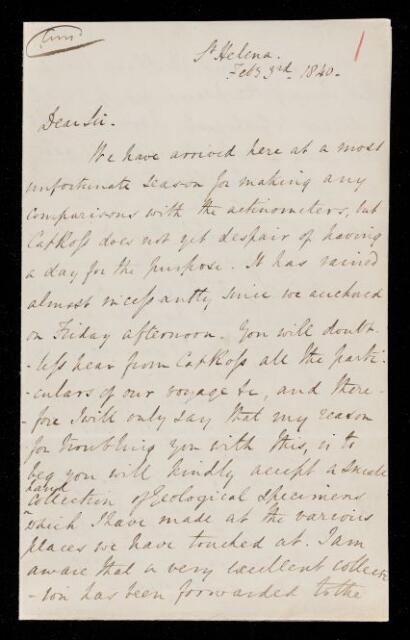 St Helena.
Feby 3rd. 1840.
Dear Sir.
We have arrived here at a most
unfortunate season for making any
comparisons with the actinometers, but
Capt Ross does not yet despair of having
a day for the purpose. It has rained
almost incessantly since we anchored
on Friday afternoon. You will doubt-
-less hear from Capt Ross all the parti-
-culars of our voyage &c, and there-
-fore I will only say that my reason
for troubling you with this, is to
beg you will kindly accept a small
hand
collection of Geological Specimens
which I have made at the various
places we have touched at. I am
aware that a very excellent collect-
-ion has been forwarded to the